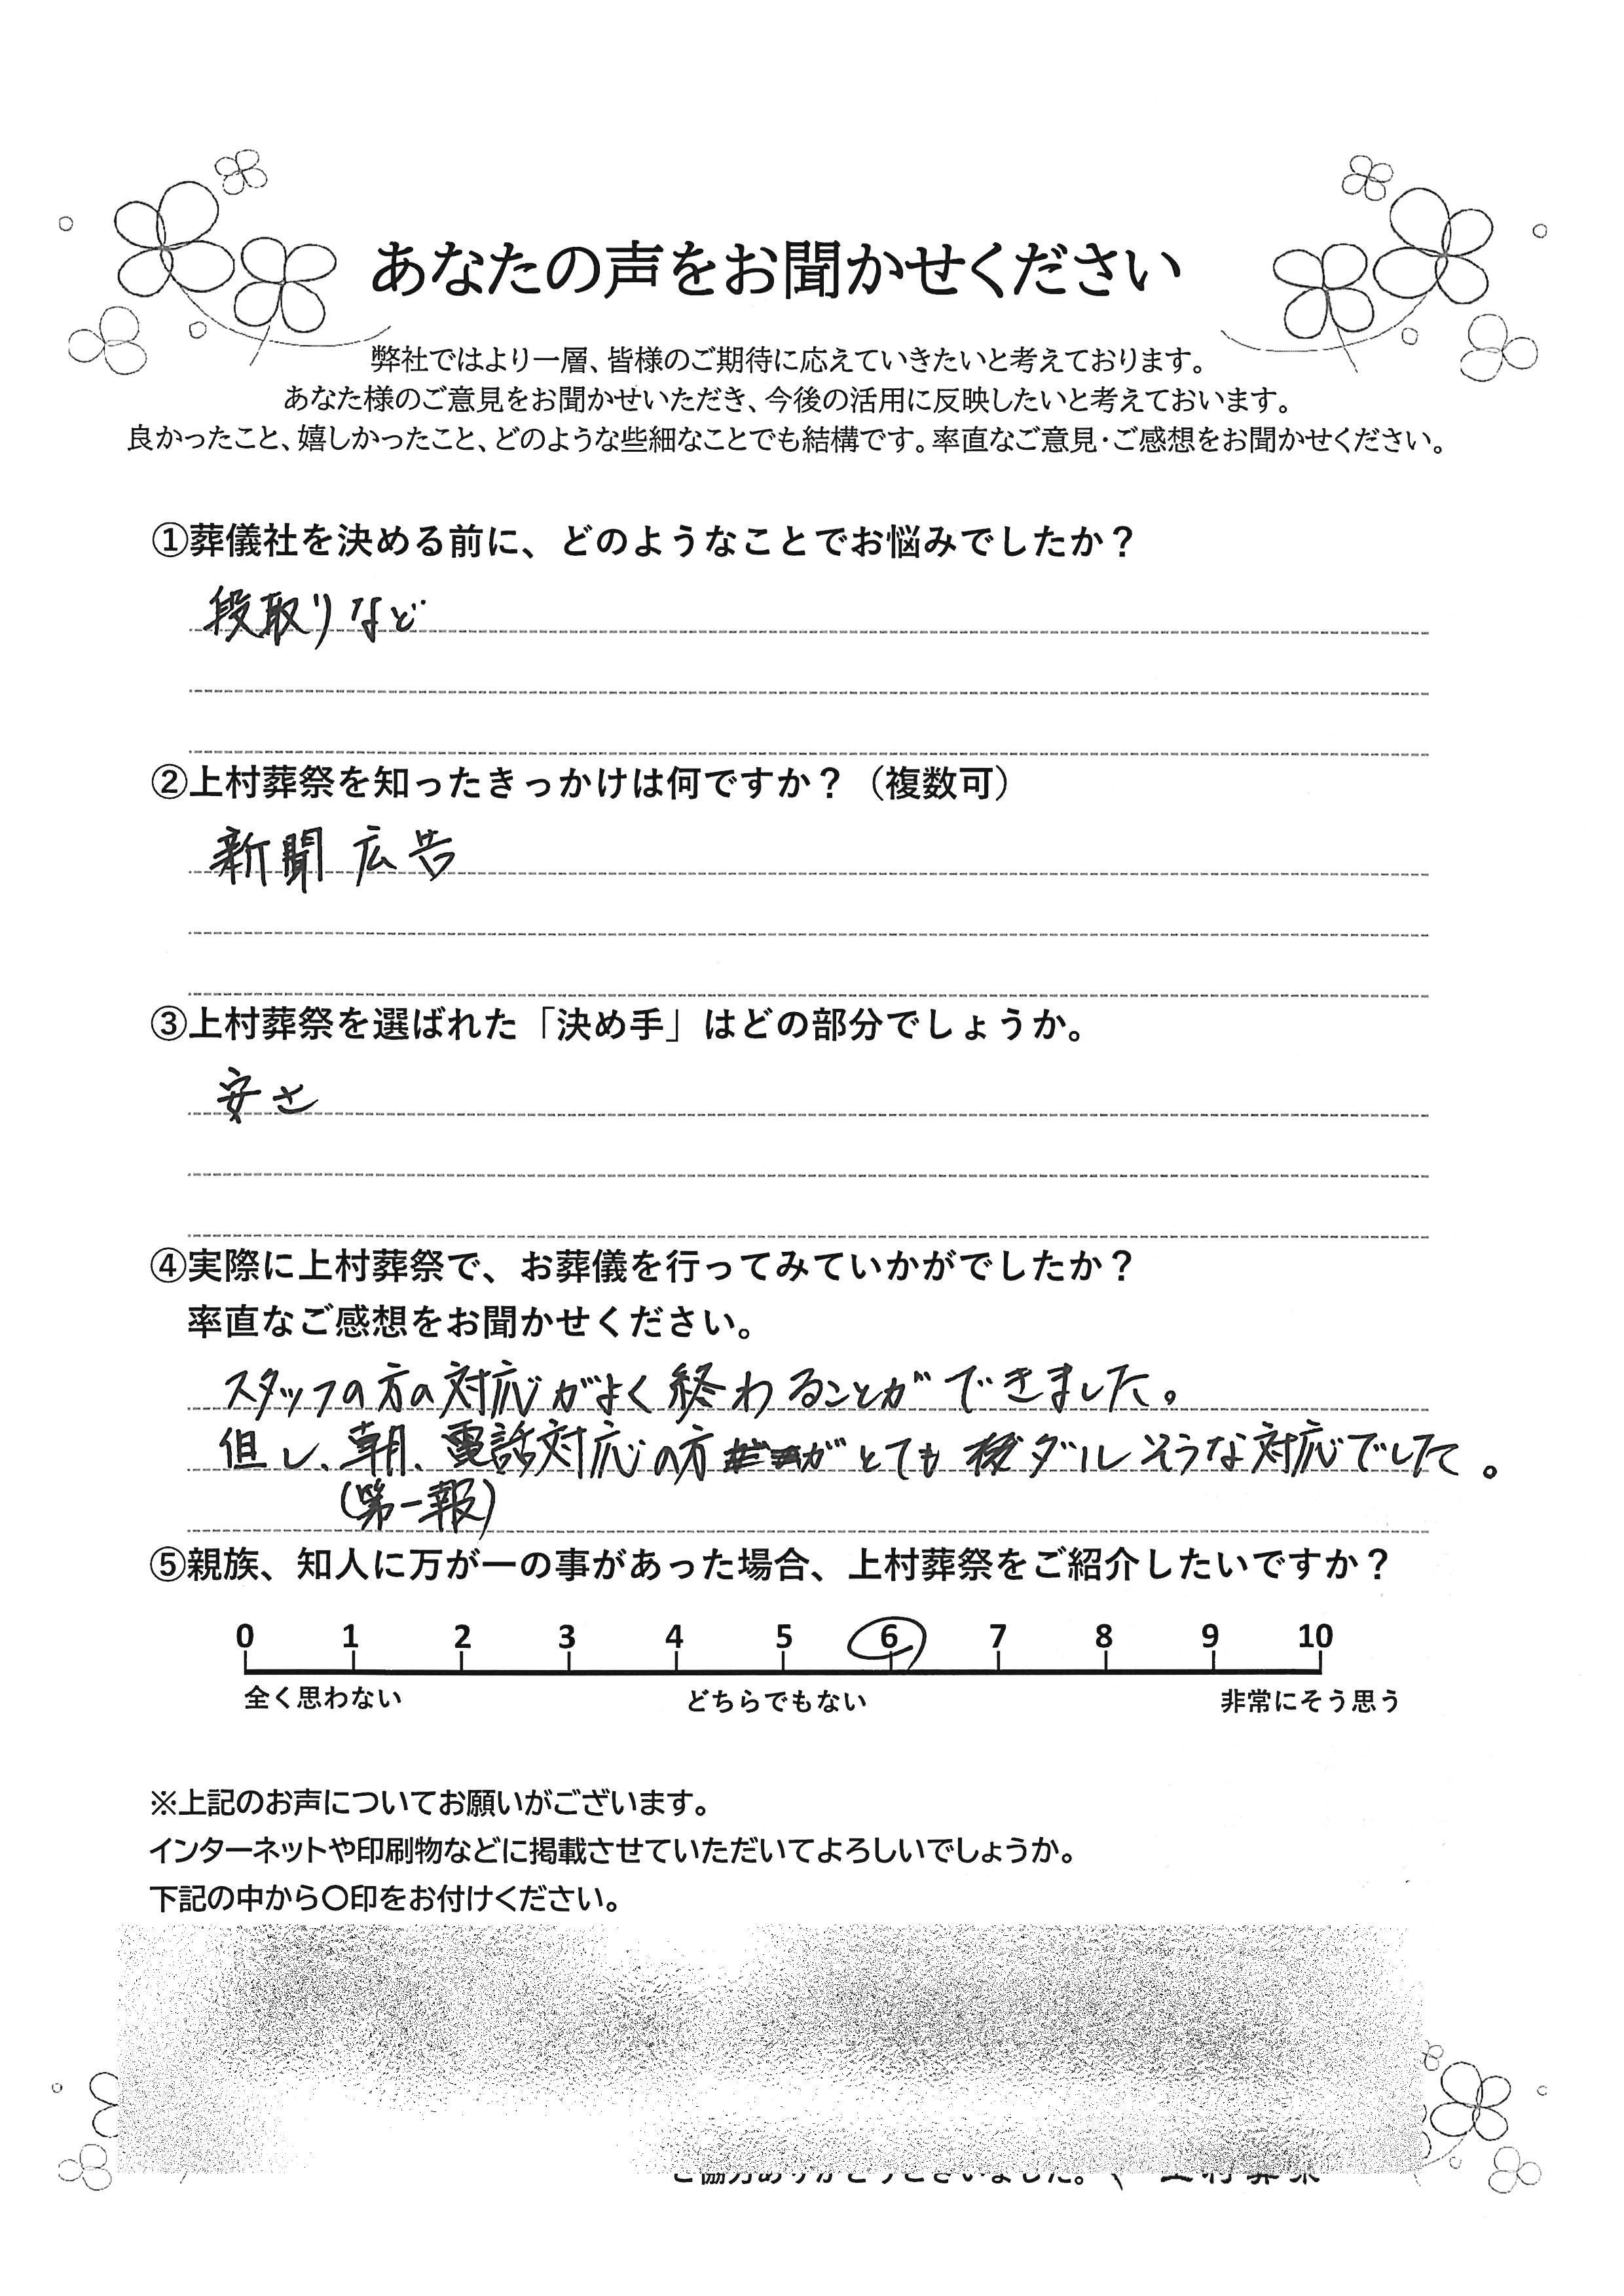 あなたの声をお聞かせください
弊社ではより一層、皆様のご期待に応えていきたいと考えております。
あなた様のご意見をお聞かせいただき、今後の活用に反映したいと考えておいます。
良かったこと、嬉しかったこと、どのような些細なことでも結構です。率直なご意見・ご感想をお聞かせください。
①葬儀社を決める前に、どのようなことでお悩みでしたか？
段取りなど
②上村葬祭を知ったきっかけは何ですか？（複数可）
新聞広告
③上村葬祭を選ばれた「決め手」はどの部分でしょうか。
安さ
④実際に上村葬祭で、お葬儀を行ってみていかがでしたか？
率直なご感想をお聞かせください。
スタッフの方の対応がよく終わることができました。
但し、朝、電話対応の方がとても ダルそうな対応でした。
(第一報)
⑤親族、知人に万が一の事があった場合、上村葬祭をご紹介したいですか？
0 1 2 3 4 5 6 7 8 9 10
全く思わない どちらでもない 非常にそう思う
※上記のお声についてお願いがございます。
インターネットや印刷物などに掲載させていただいてよろしいでしょうか。
下記の中から〇印をお付けください。